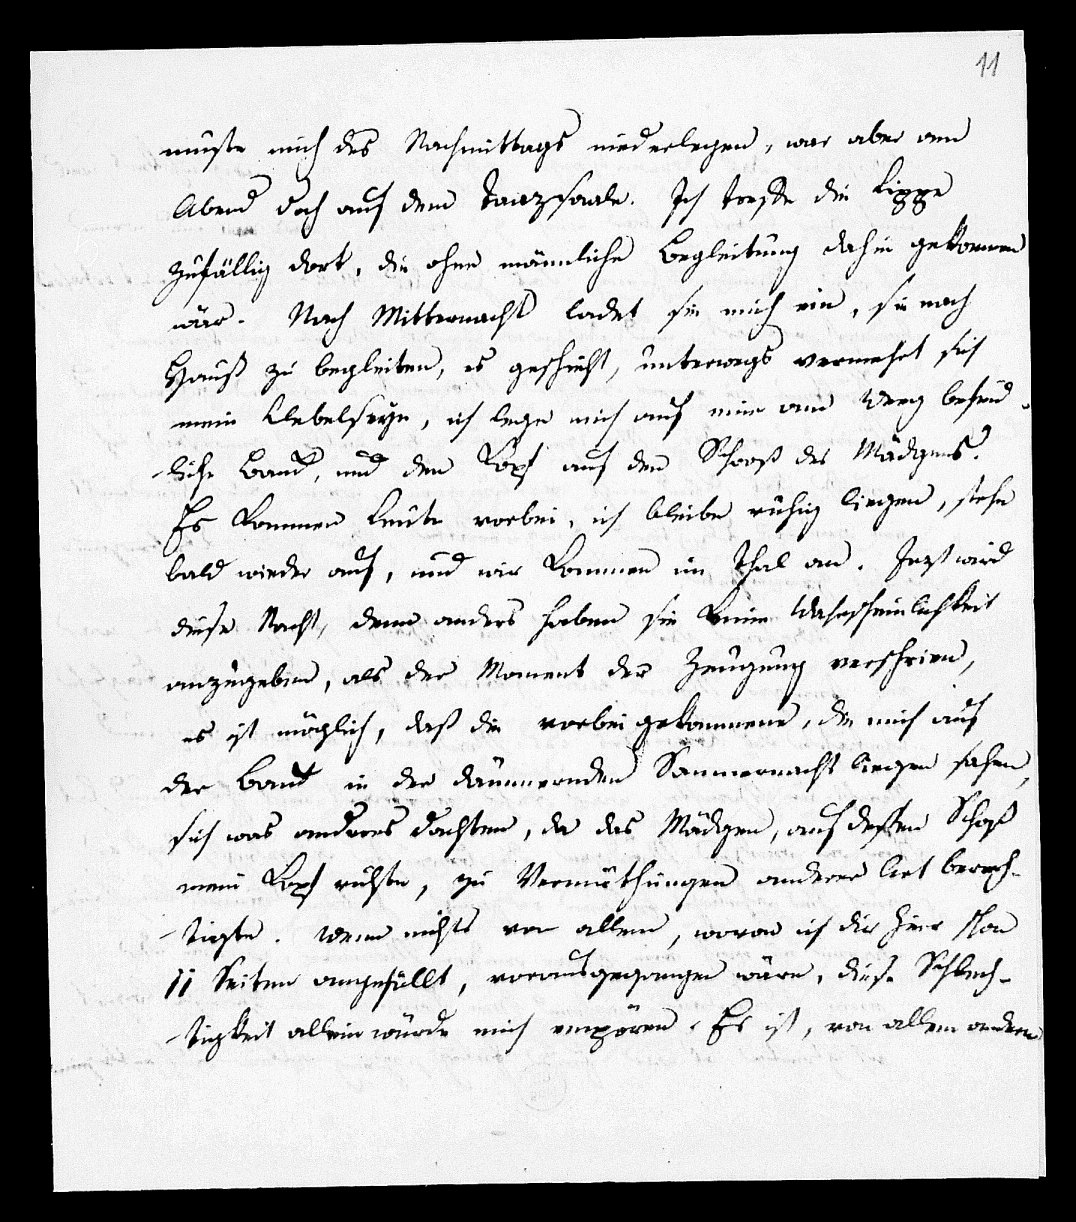 11
mußte mich des Nachmittags niederlegen, war aber am
Abend doch auf dem Tanzsaale. Ich treffe die Lippe
zufällig dort, die ohne männliche Begleitung dahin gekommen
wär. Nach Mitternacht ladet sie mich ein, sie nach
Hauß zu begleiten, es geschieht, unterwegs vermehrt sich
mein Uebelseyn, ich lege mich auf eine am Weg befind-
-liche Bank, und den Kopf auf den Schooß des Mädgens.
Es kommen Leute vorbei, ich bleibe ruhig liegen, stehe
bald wieder auf, und wir kommen im Thal an. Jezt wird
diese Nacht, denn anders haben sie keine Wahrscheinlichkeit
anzugeben, als der Moment der Zeugung verschrien,
es ist möglich, daß die vorbei gekommene, die mich auf
der Bank in der dämmernden Sommernacht liegen sahen,
sich was anderes dachten, da das Mädgen, auf dessen Schoß
mein Kopf ruhte, zu Vermuthungen anderer Art berech-
-tigte. Wenn nichts von allem, wovon ich dir hier schon
11 Seiten angefüllt, vorausgegangen wäre, diese Schlech-
-tigkeit allein würde mich empören. Es ist, von allem andern